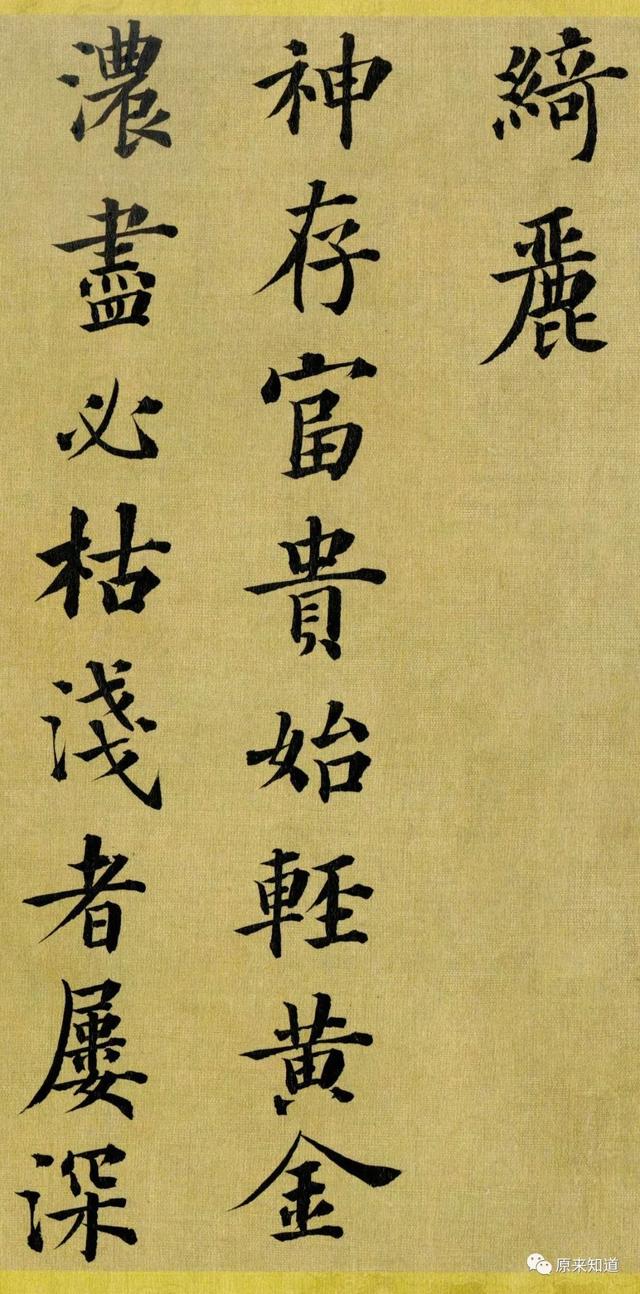 綺麗
神存富貴始輕黄金
濃盡必枯淺者屢深
原来知道